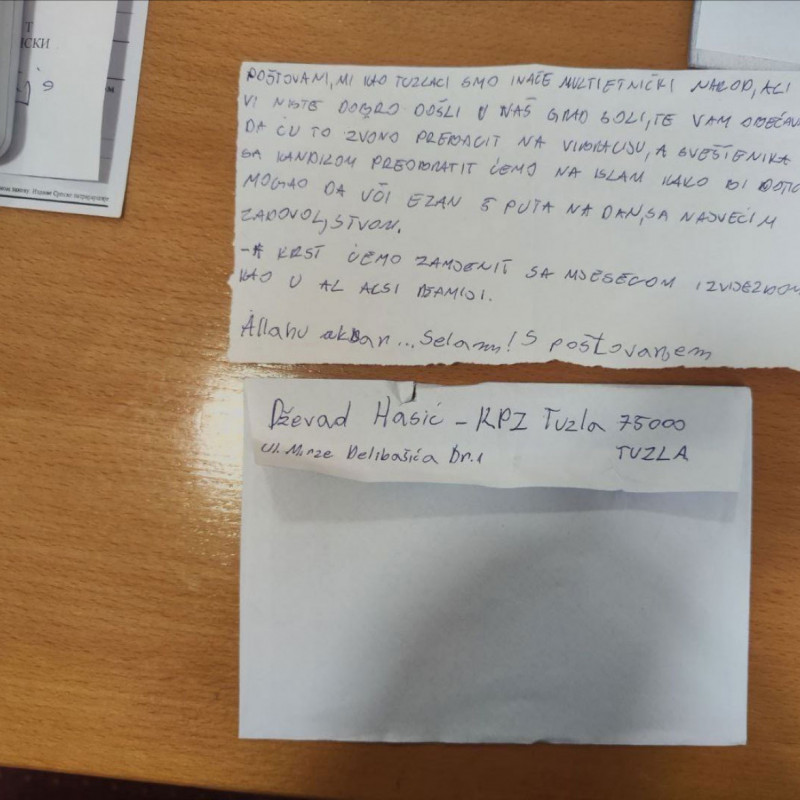 Т
ІСКИ
м
POŠTOVANI, MI KAO TUZLACI SMO INAČE MULTIETNIČKI NAROD, ALI
VI NISTE DOBRO DOŠLI U NAŠ GRAD SOLI, TE VAM OBEĆAV
DA ĆU TO ZVONO PREBACIT NA VIBRACIJU, A SVEŠTENIKA
SA KANDILOM PREOBRATIT ĆEMO NA ISLAM KAKO BI DOTIČ
MOGAO DA UČI EZAN 5 PUTA NA DAN, SA NAJVEĆIM
ZADOVOLJSTVOM.
- A KRST ĆEMO ZAMJENIT SA MJESECOM I ZVIJEZDOM
KAO U AL AKSI DŽAMIJI.
Allahu akbar... Selam! S poštovanjem
Dževad Hasić - KPZ Tuzla 75000
Ul. Mirze Delibašića Br.1 TUZLA